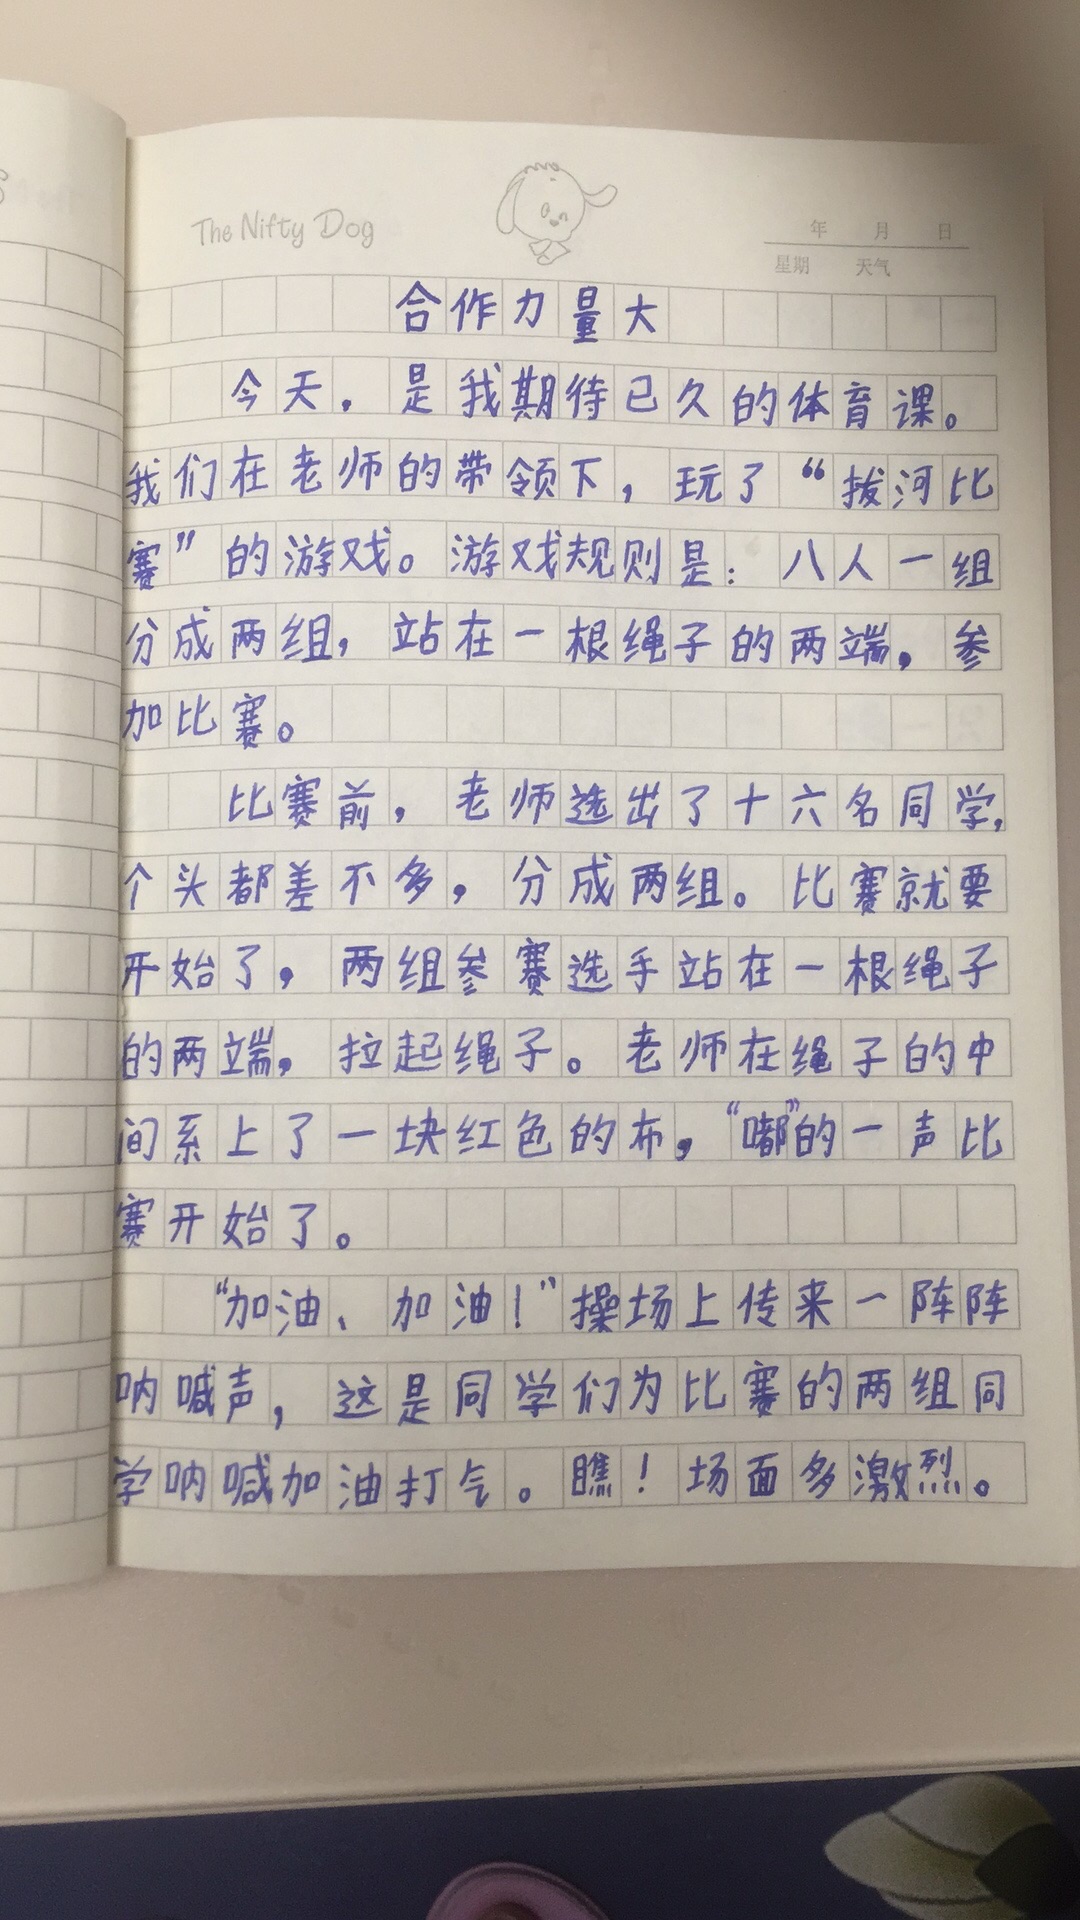 The Nifty Dog
年 月 日
星期 天气
合作力量大
今天，是我期待已久的体育课。
我们在老师的带领下，玩了“拔河比
赛”的游戏。游戏规则是：八人一组
分成两组，站在一根绳子的两端，参
加比赛。
比赛前，老师选出了十六名同学，
个头都差不多，分成两组。比赛就要
开始了，两组参赛选手站在一根绳子
的两端，拉起绳子。老师在绳子的中
间系上了一块红色的布，“嘟”的一声比
赛开始了。
“加油、加油！”操场上传来一阵阵
呐喊声，这是同学们为比赛的两组同
学呐喊加油打气。瞧！场面多激烈。